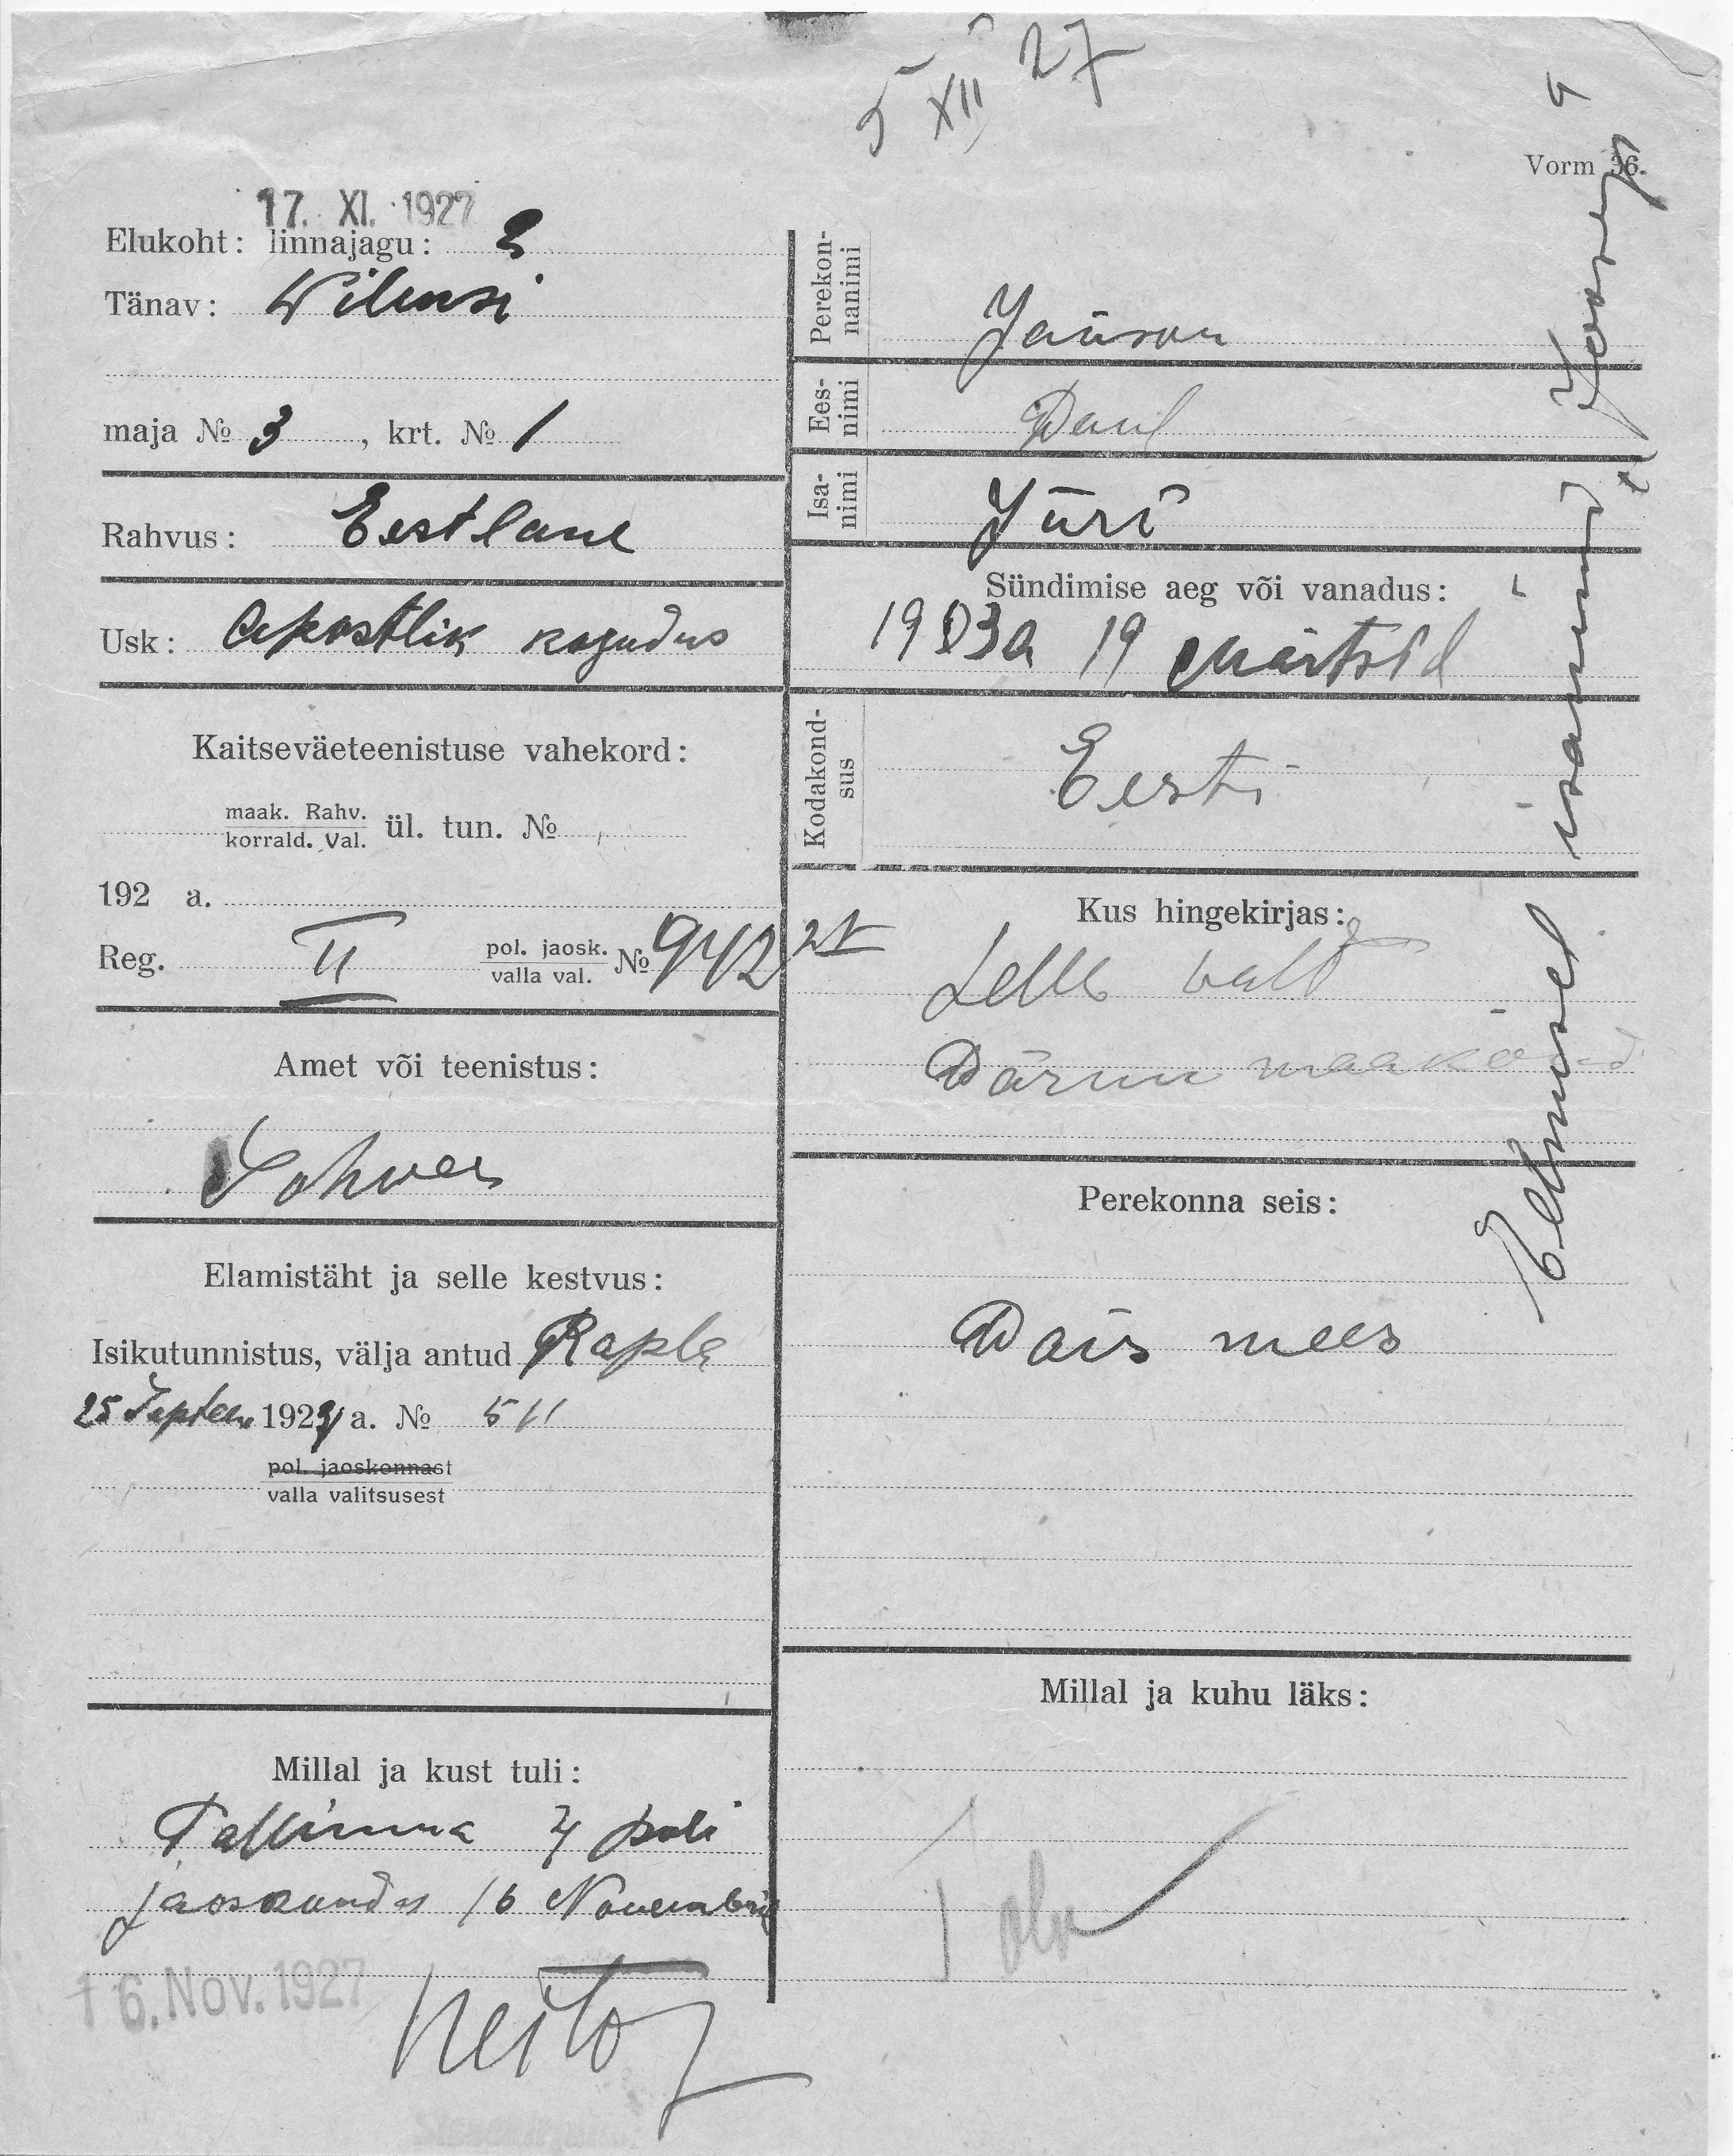 5 XII 27
Vorm 36.
17. XI. 1927
Elukoht: linnajagu: 2
Tänav: Wilmsi
maja № 3, krt. № 1
Rahvus: Eestlane
Usk: Apostlik kogudus
Kaitseväeteenistuse vahekord:
maak. Rahv.
korrald. Val. ül. tun. №
192 a.
Reg. II pol. jaosk.
valla val. № 942
Amet või teenistus:
Sohver
Elamistäht ja selle kestvus:
Isikutunnistus, välja antud Rapla
25 Septem 192 a. № 511
pol. jaoskonnast
valla valitsusest
Millal ja kust tuli:
Tallinna 4 poli
jaoskondas 16 Novembril
16. Nov. 1927
Perekon-
nanimi
Jänson
Ees-
nimi
Paul
Isa-
nimi
Jüri
Sündimise aeg või vanadus:
1903a 19 Märtsil
Kodakond-
sus
Eesti
Kus hingekirjas:
Lelle vald
Pärnu maakond
Perekonna seis:
Pois mees
Millal ja kuhu läks:
Eelmisel isanimi